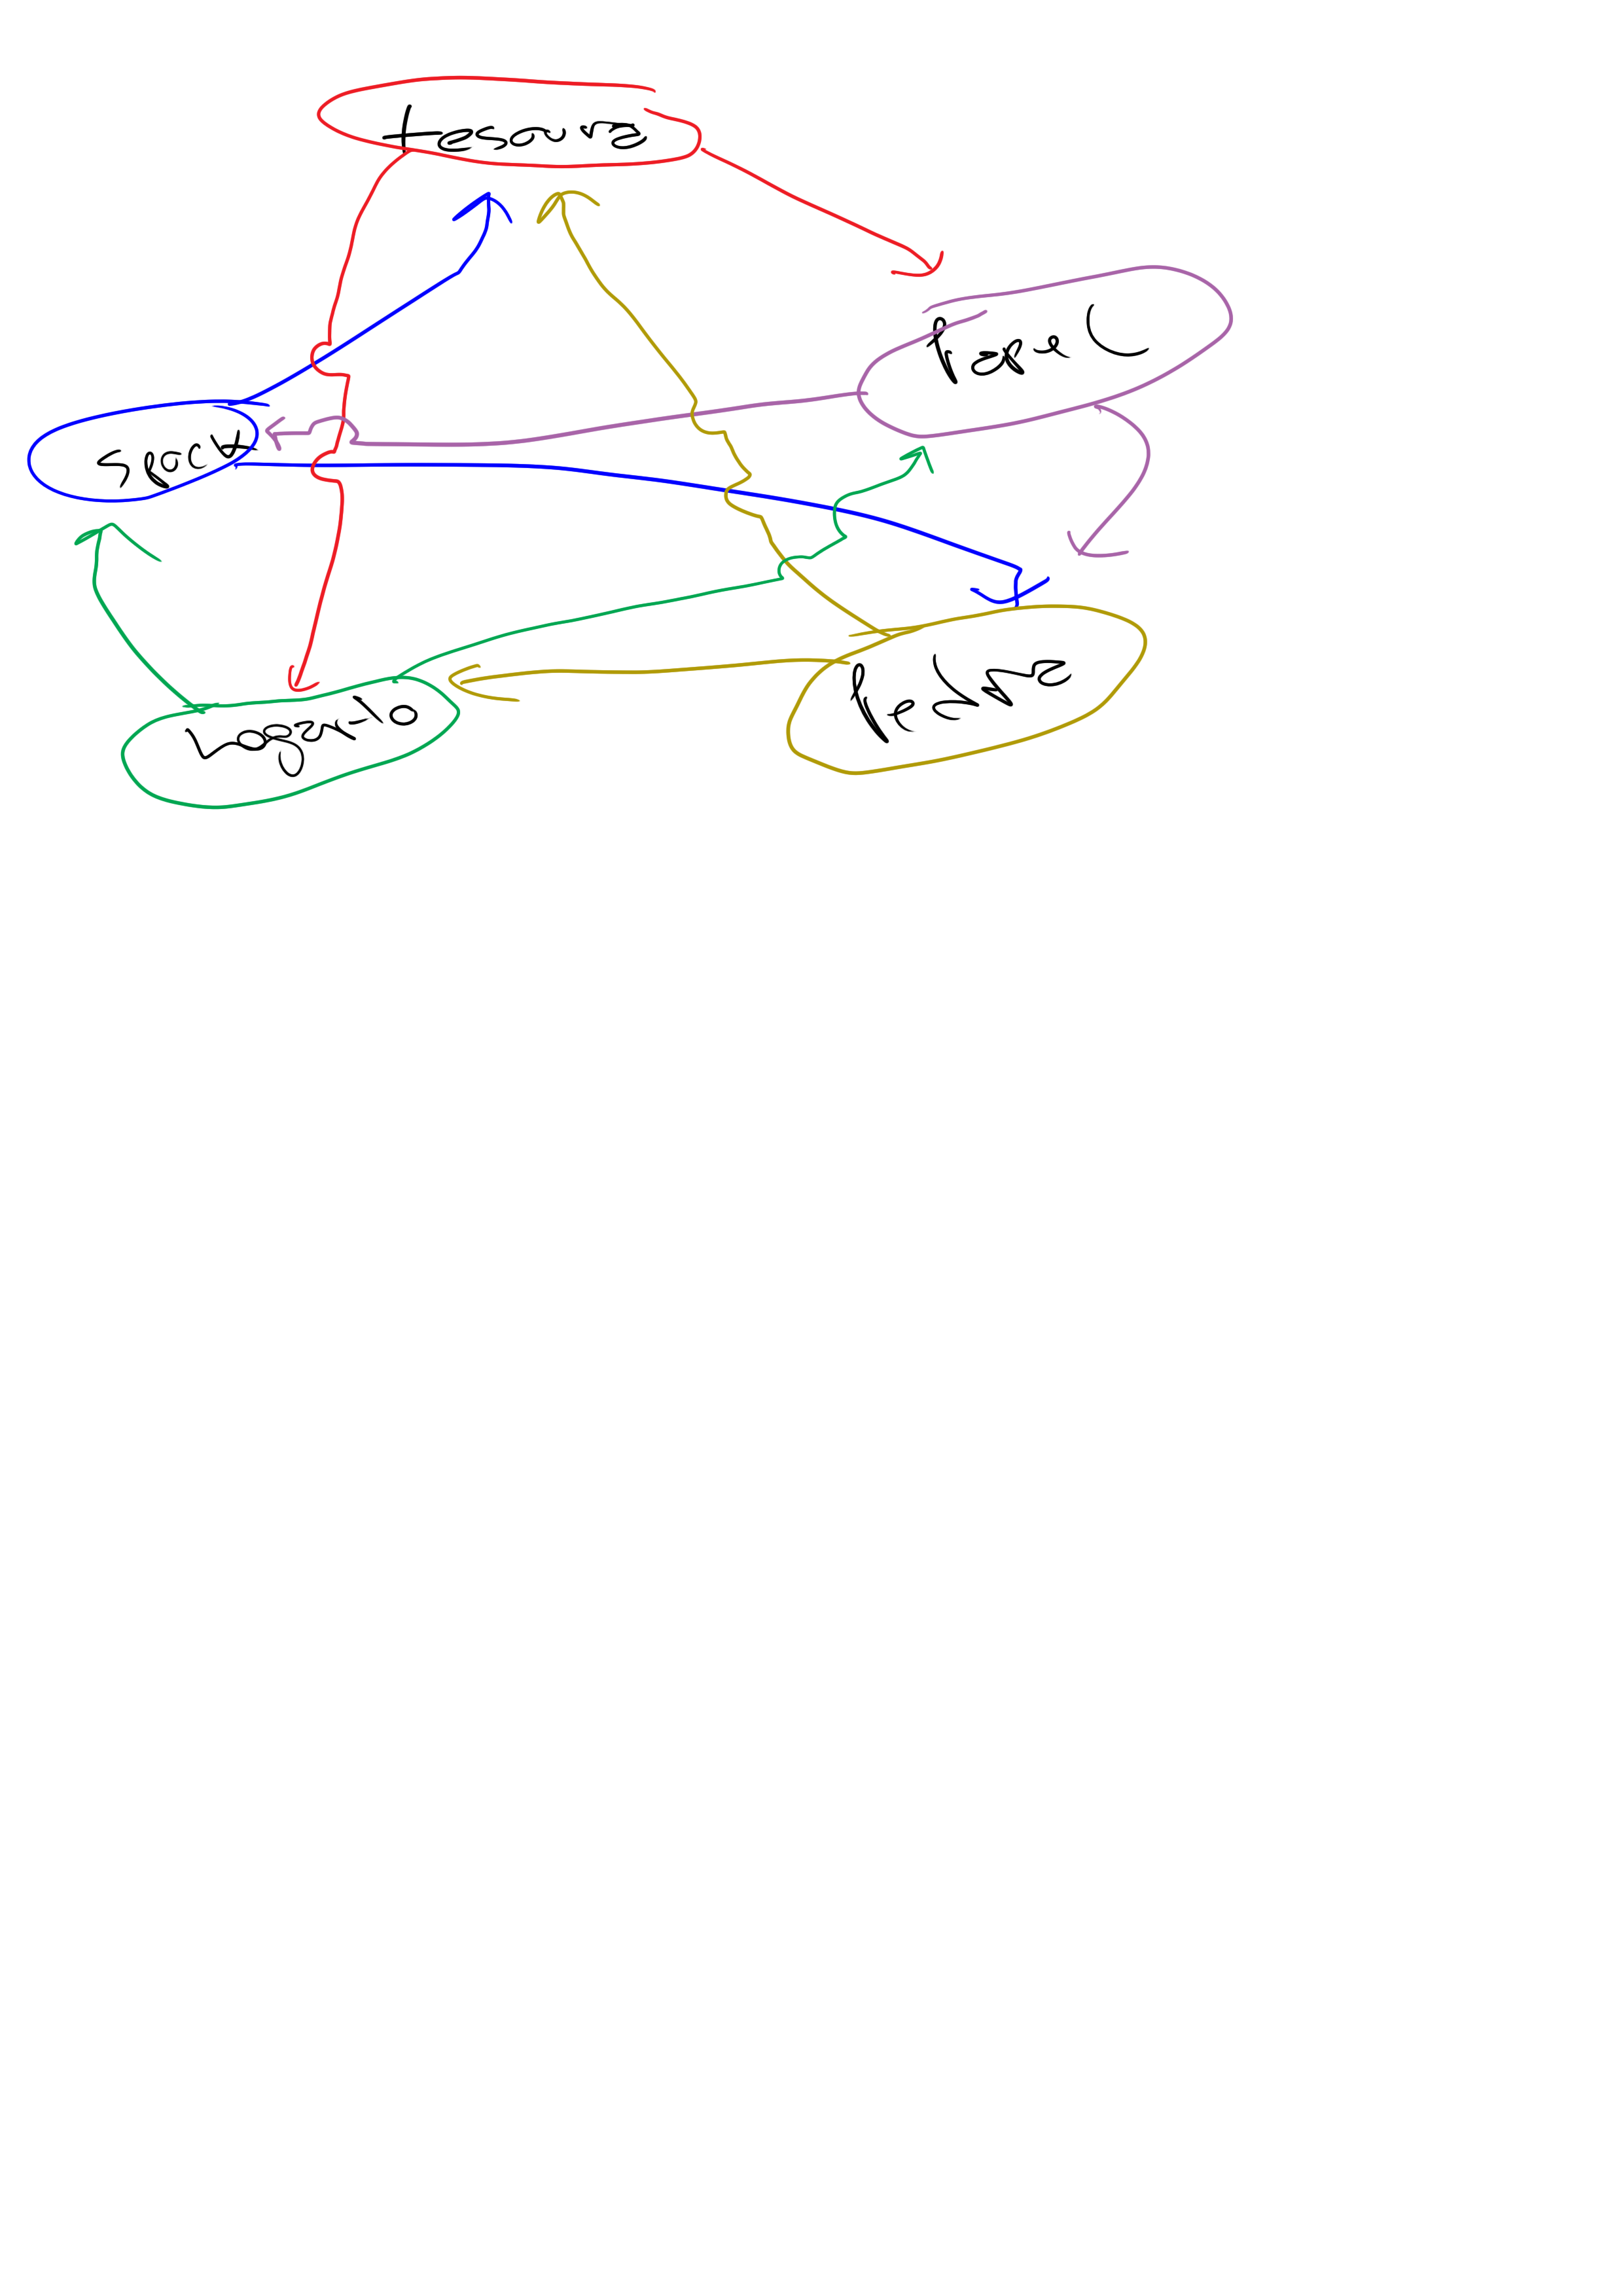 tesoura
Papel
Spock
Lagarto
Pedra